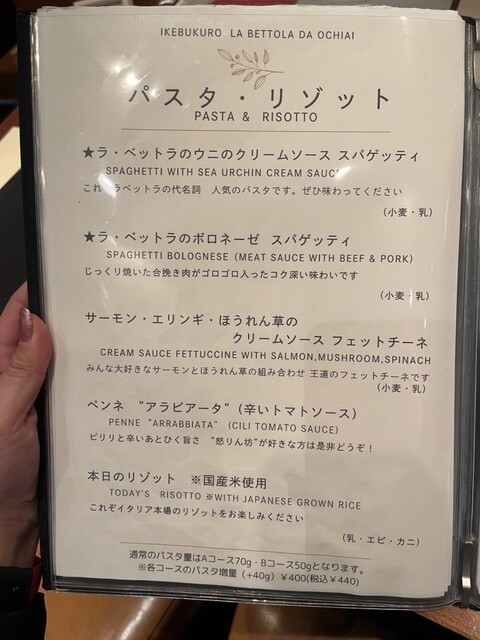 IKEBUKURO LA BETTOLA DA OCHIAI
パスタ・リゾット
PASTA & RISOTTO
★ラ・ベットラのウニのクリームソース スパゲッティ
SPAGHETTI WITH SEA URCHIN CREAM SAUCE
これ ラベットラの代名詞 人気のパスタです。ぜひ味わってください
(小麦・乳)
★ラ・ベットラのボロネーゼ スパゲッティ
SPAGHETTI BOLOGNESE (MEAT SAUCE WITH BEEF & PORK)
じっくり焼いた合挽き肉がゴロゴロ入ったコク深い味わいです
(小麦・乳)
サーモン・エリンギ・ほうれん草の
クリームソース フェットチーネ
CREAM SAUCE FETTUCCINE WITH SALMON,MUSHROOM,SPINACH
みんな大好きなサーモンとほうれん草の組み合わせ 王道のフェットチーネです
(小麦・乳)
ペンネ "アラビアータ" (辛いトマトソース)
PENNE "ARRABBIATA" (CILI TOMATO SAUCE)
ピリリと辛いあとひく旨さ "怒りん坊"が好きな方は是非どうぞ!
本日のリゾット ※国産米使用
TODAY'S RISOTTO ※WITH JAPANESE GROWN RICE
これぞイタリア本場のリゾットをお楽しみください
(乳・エビ・カニ)
通常のパスタ量はAコース70g・Bコース50gとなります。
※各コースのパスタ増量 (+40g) ¥400(税込¥440)